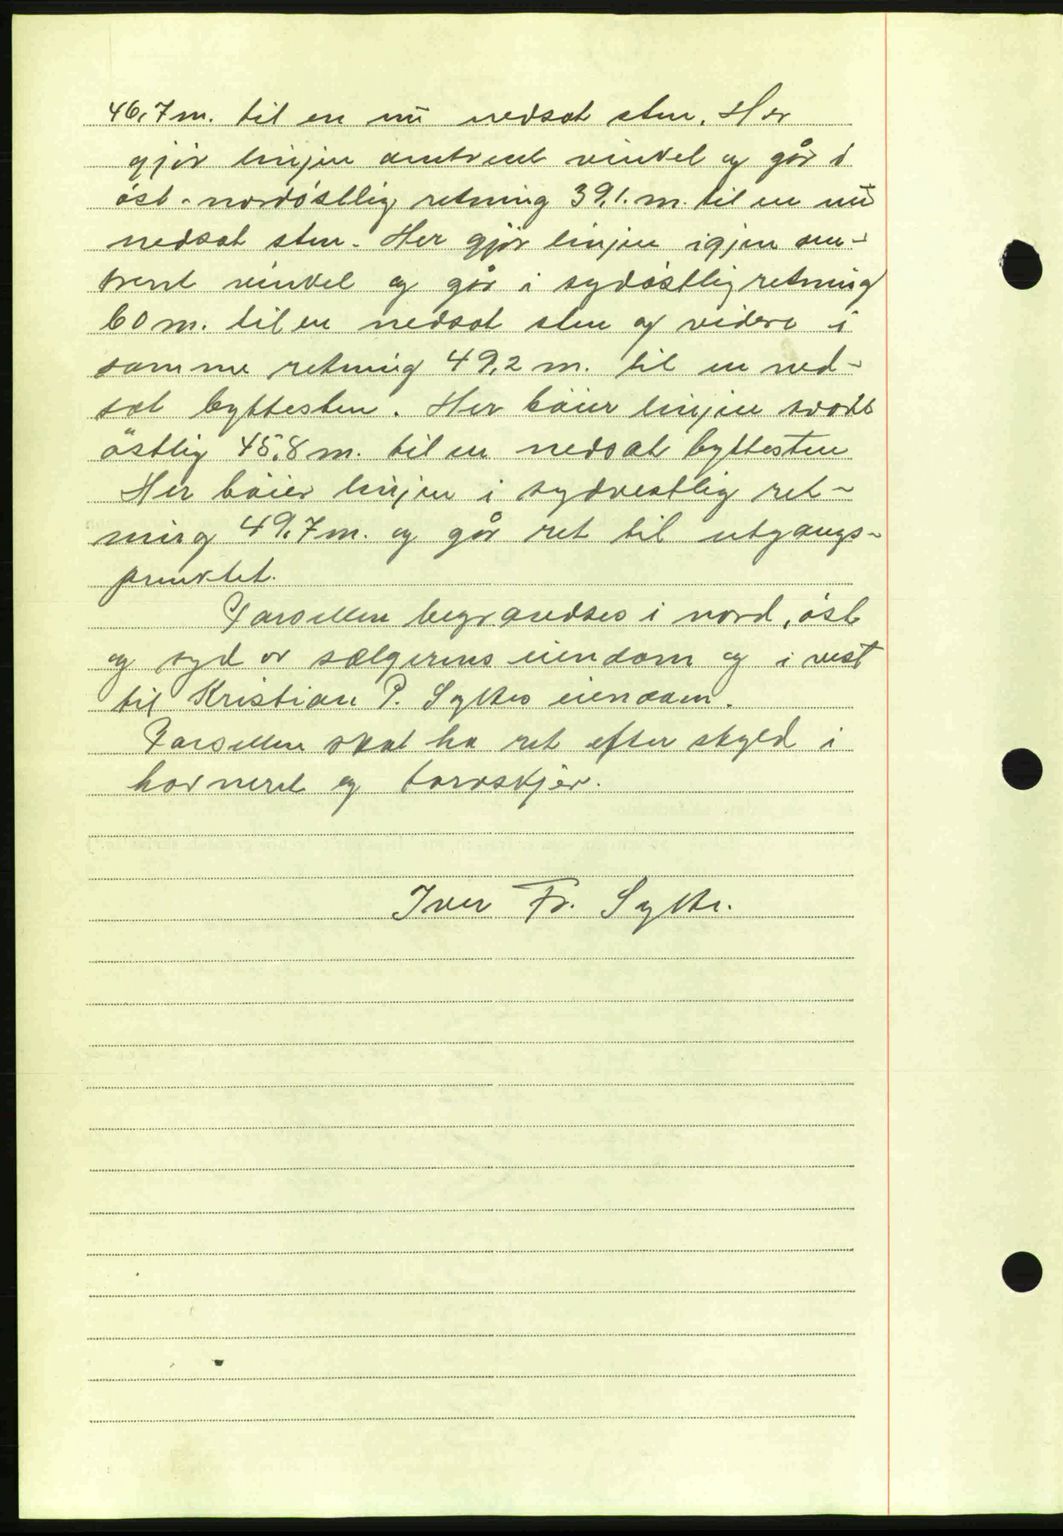 46.7 m. til en nū nedsat sten. Her
gjör linjen omtrent vinkel og går i
öst-nordöstlig retning 39.1. m. til en nū
nedsat sten. Her gjör linjen igjen om-
trent vinkel og går i sydöstlig retning
60 m. til en nedsat sten og videre i
samme retning 49.2 m. til en ned-
sat byttesten. Her böier linjen
östlig 45.8 m. til en nedsat byttesten
Her böier linjen i sydvestlig ret-
ning 49.7 m. og går ret til utgangs-
punktet.
Parsellen begrændses i nord, öst
og syd av sælgerens eiendom og i vest
til Kristian P. Syltes eiendom.
Parsellen skal ha ret efter skyld i
havneret og torvskjær.
Iver Fr. Sylte.